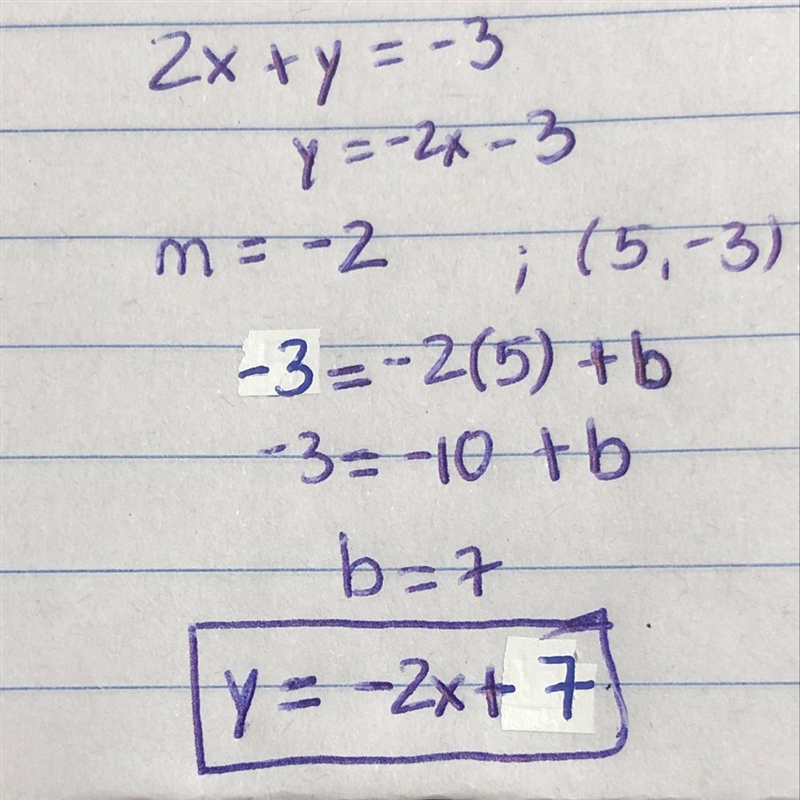 2x + y = -3
y = -2x - 3
m = -2 ; (5, -3)
-3 = -2(5) + b
-3 = -10 + b
b = 7
y = -2x + 7